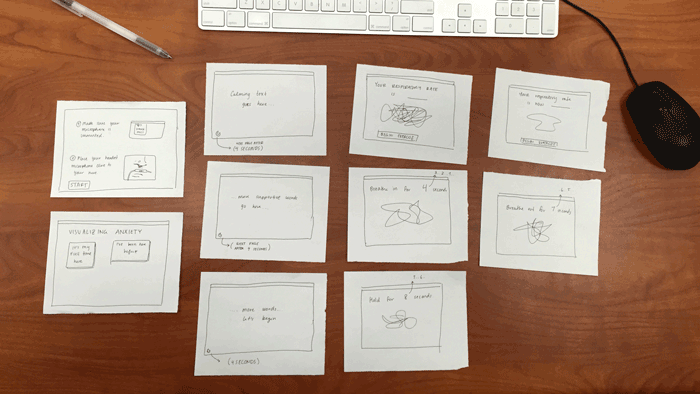 ① Make sure your
microphone is
connected.
② Place your headset
microphone close to
your nose
START
VISUALIZING ANXIETY
It's my
first time
here
I've been here
before
Calming text
goes here...
(4 SECONDS)
More supportive words
go here...
NEXT PAGE
AFTER 4 SECONDS
more words.
let's begin
(4 SECONDS)
YOUR RESPIRATORY RATE
IS
BEGIN EXERCISE
Breathe in for 4 seconds
Hold for 8 seconds
Your respiratory rate
is now
Breathe out for 7 seconds